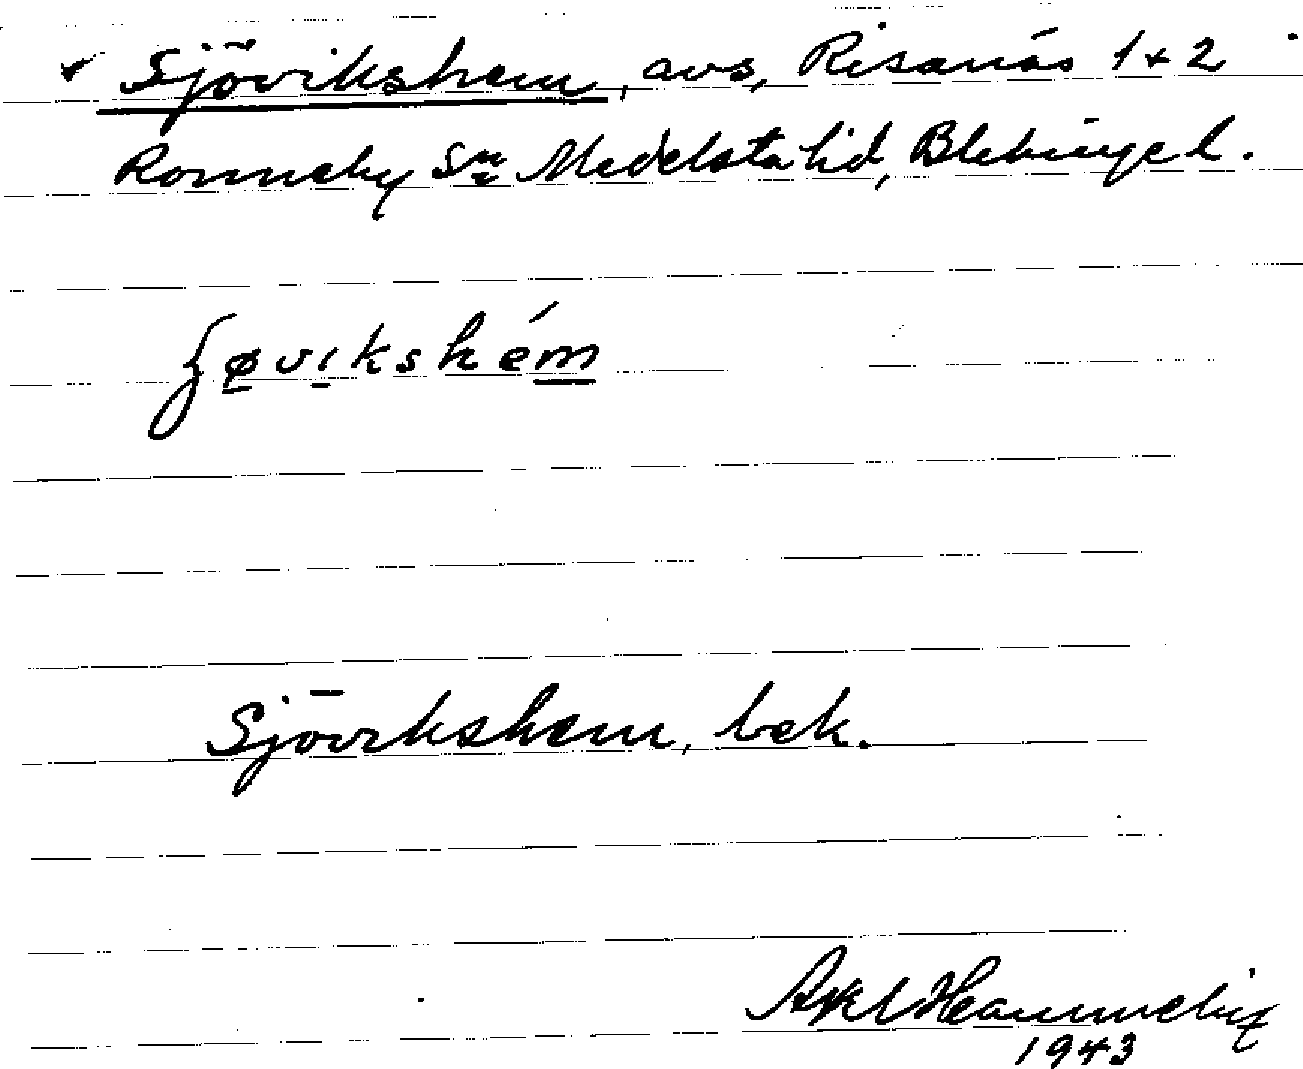 Sjövikshem, avs, Risanäs 1+2
Ronneby sn Medelsta hd, Blekinge l.
ʃøvikshém
Sjövikshem, bek.
Axel
1943